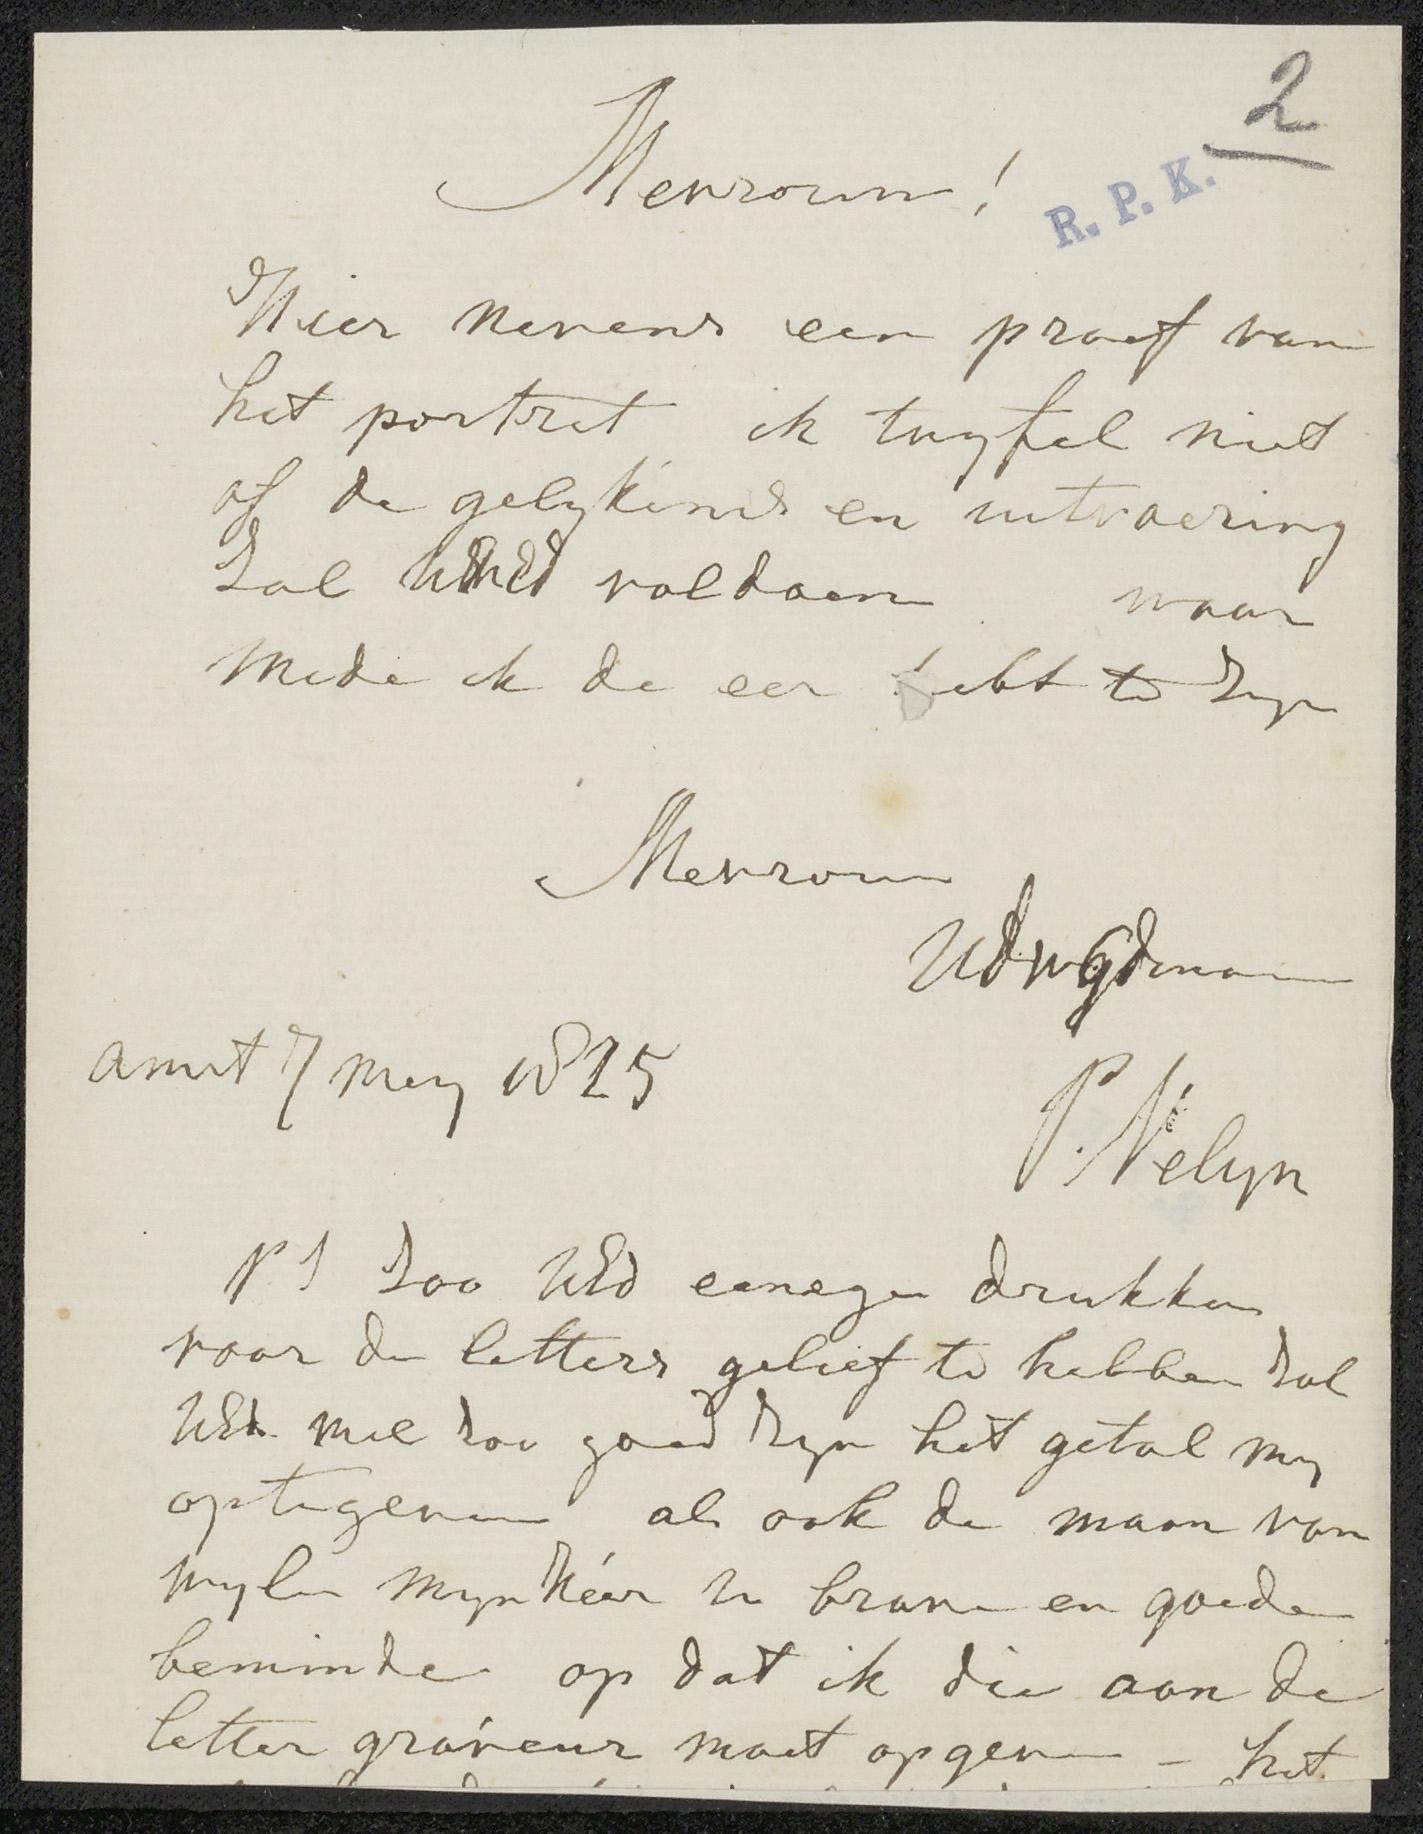 2
R. P. K.
Mevrouw!
Hier nevens een proef van
het portret ik twyfel niet
of de gelykinis en uitvoering
zal UEd voldoen waar
mede ik de eer hebt te zyn
Mevrouw
UdwgDienaar
Amst 7 mey 1825
P. Velyn
PS Zoo UEd eenege drukken
voor de letters gelief te hebben zal
UEd wel zoo goed zyn het getal my
optegeven als ook de naam van
wylen mynheer U brave en goede
beminde op dat ik die aan de
letter graveur moet opgeven - het